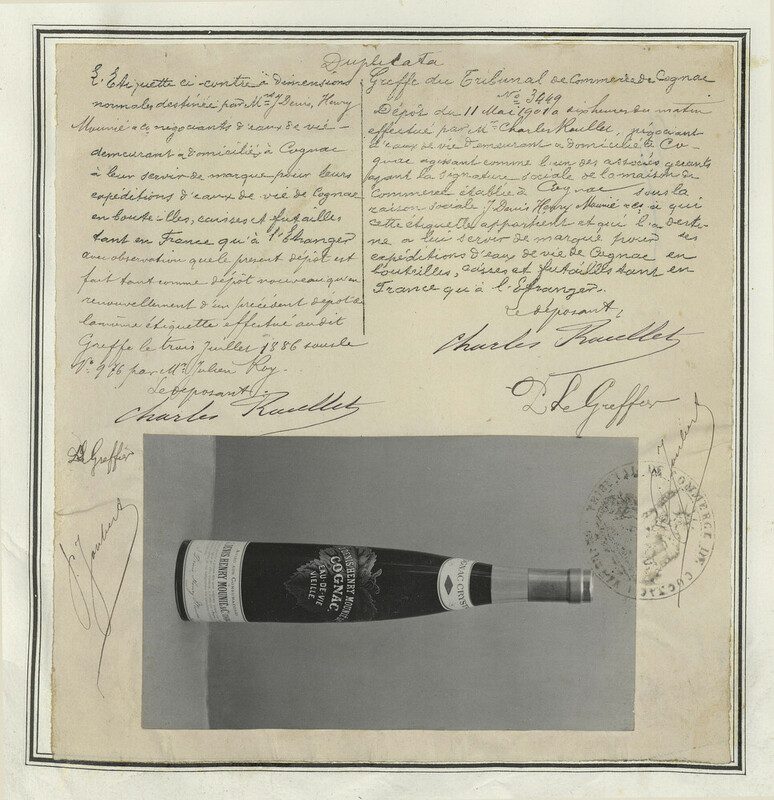 Duplicata
L'Etiquette ci-contre à dimensions
normales destinée par Mrs J. Denis, Henry
Mounié & Co négociants d'eaux de vie
demeurant & domiciliés à Cognac
à leur servir de marque pour leurs
expéditions d'eaux de vie de Cognac
en bouteilles, caisses et futailles
tant en France qu'à l'Etranger
avec observation que le présent dépôt est
fait tant comme dépôt nouveau qu'en
renouvellement d'un précédent dépôt de
la même étiquette effectué au dit
Greffe le trois Juillet 1886 sous le
No 976 par Mr Julien Roy.
Le déposant,
Charles Roullet
Le Greffier
J. Joubert
Greffe du Tribunal de Commerce de Cognac
No 3449
Dépôt du 11 Mai 1901 a six heures du matin
effectué par Mr Charles Roullet, négociant
d'eaux de vie demeurant & domicilié à Co-
gnac agissant comme l'un des associés gérants
ayant la signature sociale de la maison de
Commerce établie à Cognac sous la
raison sociale J. Denis Henry Mounié & Co à qui
cette étiquette appartient et qui l'a desti-
né a leur servir de marque pour ses
expéditions d'eaux de vie de Cognac en
bouteilles, caisses et futailles tant en
France qu'à l'Etranger.
Le déposant,
Charles Roullet
Le Greffier
J. Joubert
COMMERCE DE COGNAC
DENIS HENRY MOUNIÉ & Co
DENIS HENRY MOUNIÉ
COGNAC
EAU-DE-VIE
VIEILLE